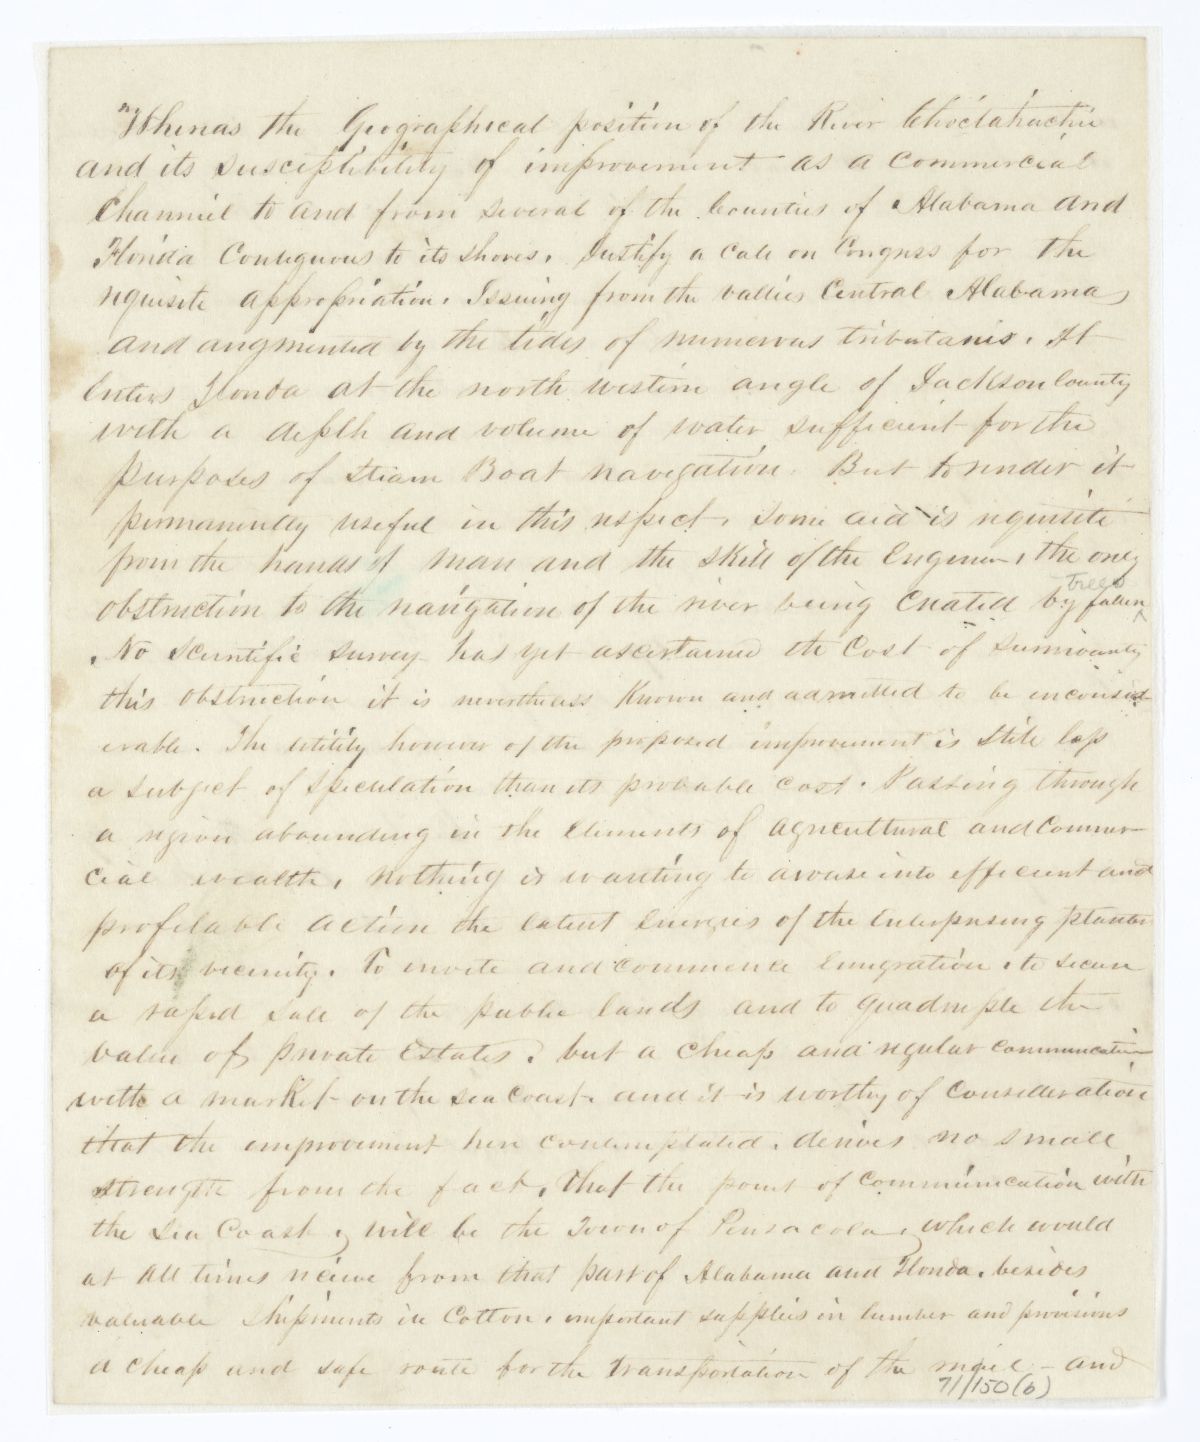 "Whereas the Geographical position of the River Choctahachie
and its susceptibility of improvement as a Commercial
Channel to and from several of the Counties of Alabama and
Florida Contiguous to its shores. Justify a call on Congress for the
requisite appropriation. Issuing from the vallies Central Alabama
and augmented by the tides of numerous tributaries. It
Enters Florida at the north western angle of Jackson County
with a depth and volume of water sufficient for the
purposes of Steam Boat navigation. But to render it
permanently useful in this respect, Some aid is requisite
from the hands of man and the skill of the Engineer, the only
obstruction to the navigation of the river being Created by fallen trees
No scientific survey has yet ascertained the Cost of surmounting
this obstruction it is nevertheless Known and admitted to be inconsid
erable. The utility however of the proposed improvement is still less
a subject of speculation than its probable cost. Passing through
a region abounding in the Elements of agricultural and Commer-
cial wealth, nothing is wanting to arouse into efficient and
profitable action the latent Energies of the Enterprising planter
of its vicinity. To invite and commence Emigration, to secure
a rapid sale of the public lands and to quadruple the
value of private Estates, but a cheap and regular communication
with a market on the sea Coast. and it is worthy of Consideration
that the improvement here contemplated, derives no small
strength from the fact, that the point of Communication with
the Sea Coast, will be the Town of Pensacola, which would
at all times receive from that part of Alabama and Florida, besides
valuable Shipments in Cotton, important supplies in lumber and provisions
a cheap and safe route for the transportation of the mail - and
71/150(b)